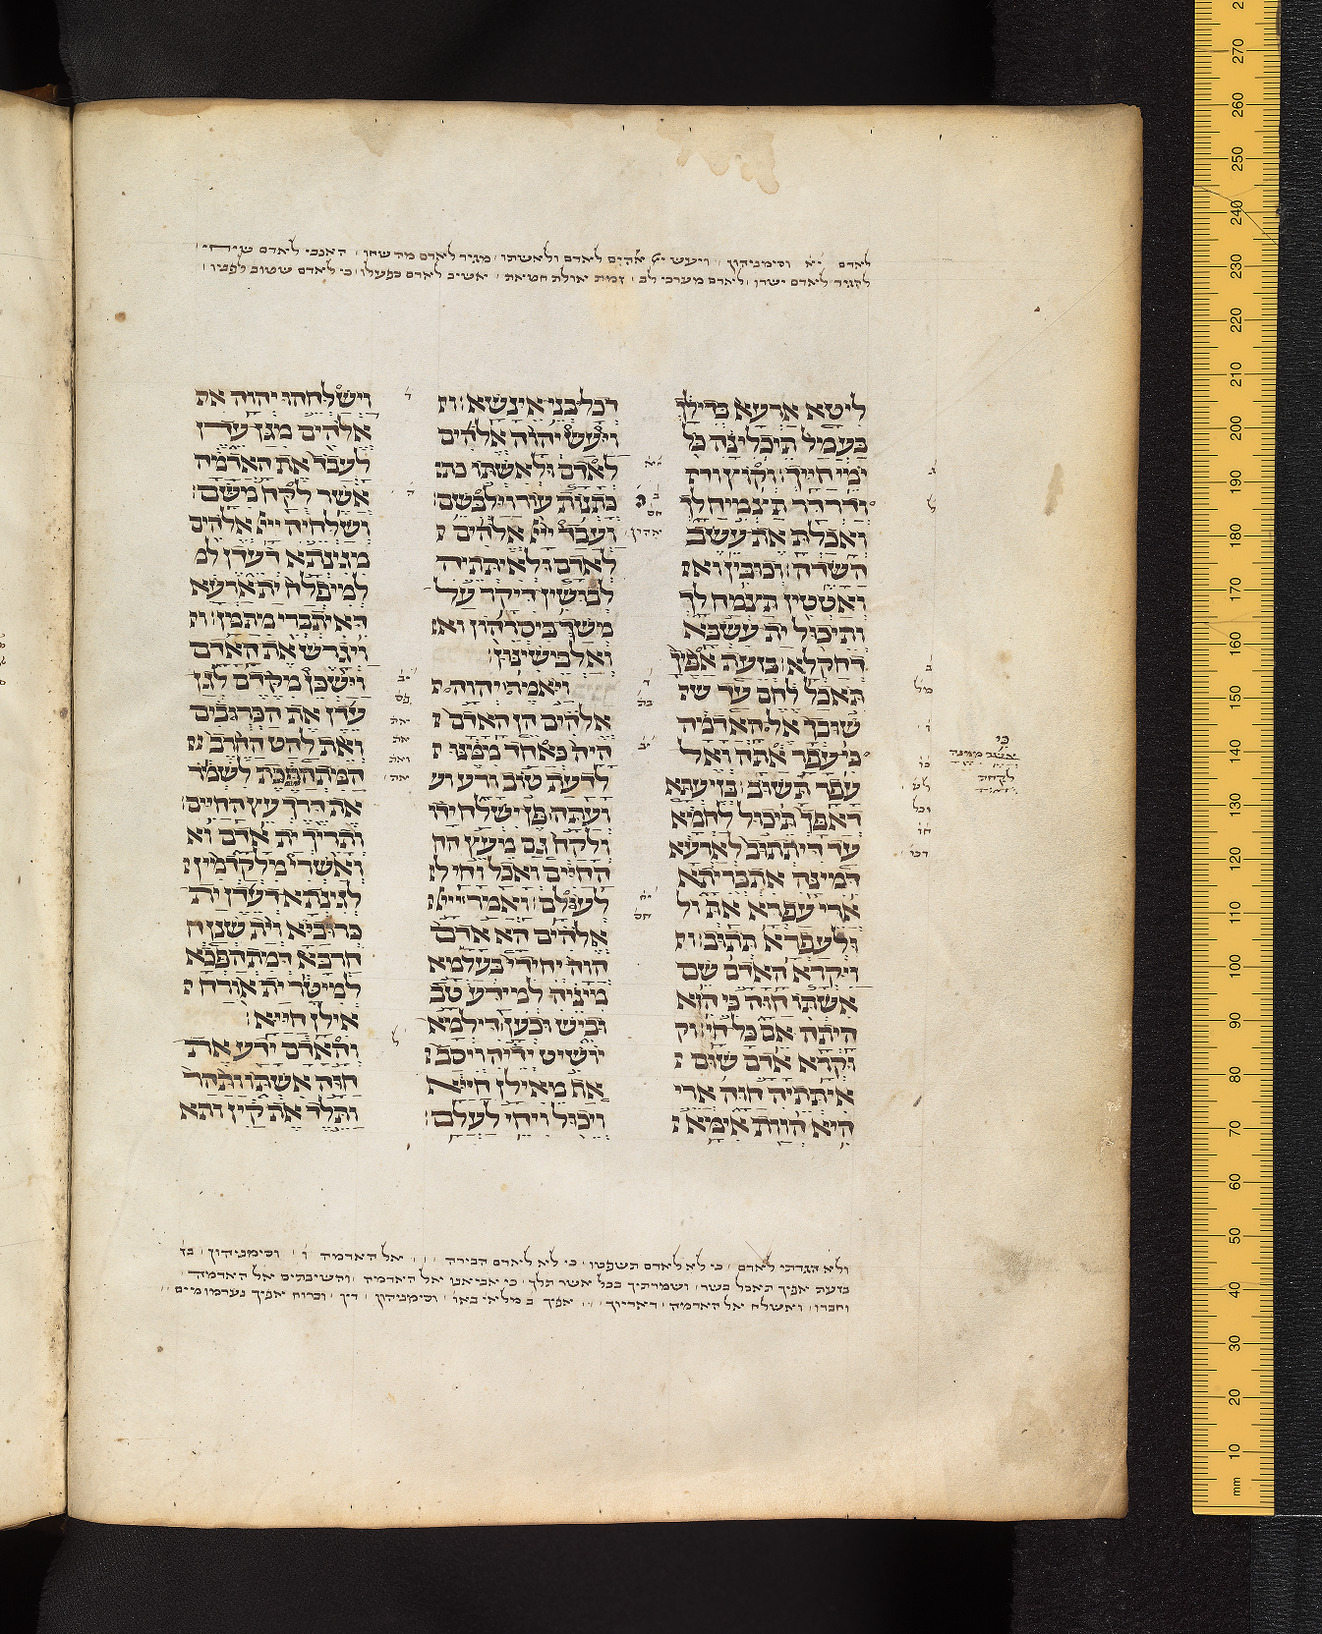 לאדם יא וסימניהון ויעש יי אלהים לאדם ולאשתו מגיד לאדם מה שחו האנכי לאדם שיחי
להגיד לאדם ישרו לאדם מערכי לב זמת אולת חטאת אשיב לאדם כפעלו כי לאדם שטוב לפניו
ליטא ארעא בדילך
בעמל תיכלינה כל
יומי חייך וקוץ ודר
ודרדר תצמיח לך
ואכלת את עשב
השדה וכובין ואט
ואטטין תצמח לך
ותיכול ית עשבא
דחקלא בזעת אפיך
תאכל לחם עד שו
שובך אל האדמה
כי עפר אתה ואל
עפר תשוב בזיעתא
דאפך תיכול לחמא
עד דיתתוב לארעא
דמינה אתבריתא
ארי עפרא את ול
ולעפרא תתוב
ויקרא האדם שם
אשתו חוה כי הוא
היתה אם כל חי וק
וקרא אדם שום
איתתיה חוה ארי
היא הוות אימא
דכל בני אינשא
ויעש יהוה אלהים
לאדם ולאשתו כת
כתנות עור וילבשם
ועבד ייי אלהים
לאדם ולאיתתיה
לבושין דיקר על
משך ביסרהון וא
ואלבישינון
ויאמר יהוה
אלהים הן האדם
היה כאחד ממנו
לדעת טוב ורע וע
ועתה פן ישלח ידו
ולקח גם מעץ הח
החיים ואכל וחי ל
לעולם ואמר ייי
אלהים הא אדם
הוה יחידי בעלמא
מיניה למידע טב
וביש וכען דילמא
יושיט ידיה ויסב
אף מאילן חייא
ויכול ויחי לעלם
וישלחהו יהוה את
אלהים מגן עדן
לעבד את האדמה
אשר לקח משם
ושלחיה ייי אלהים
מגינתא דעדן למ
למיפלח ית ארעא
דאיתברי מתמן
ויגרש את האדם
וישכן מקדם לגן
עדן את הכרבים
ואת להט החרב
המתהפכת לשמר
את דרך עץ החיים
ותריך ית אדם וא
ואשרי מלקדמין
לגינתא דעדן ית
כרוביא וית שנן ח
חרבא דמתהפכא
למיטר ית אורח
אילן חייא
והאדם ידע את
חוה אשתו ותהר
ותלד את קין ותא
ולא הגדתי לאדם כי לא לאדם תשפטו כי לא לאדם הבירה אל האדמה ו וסימניהון בז
בזעת אפיך תאכל בשר ושמרתיך בכל אשר תלך כי אביאנו אל האדמה והשיבתים אל האדמה
וחברו ואשלח אל האדמה דאריוך אפיך ב מלאי באו וסימניהון דין וברוח אפיך נערמו מים